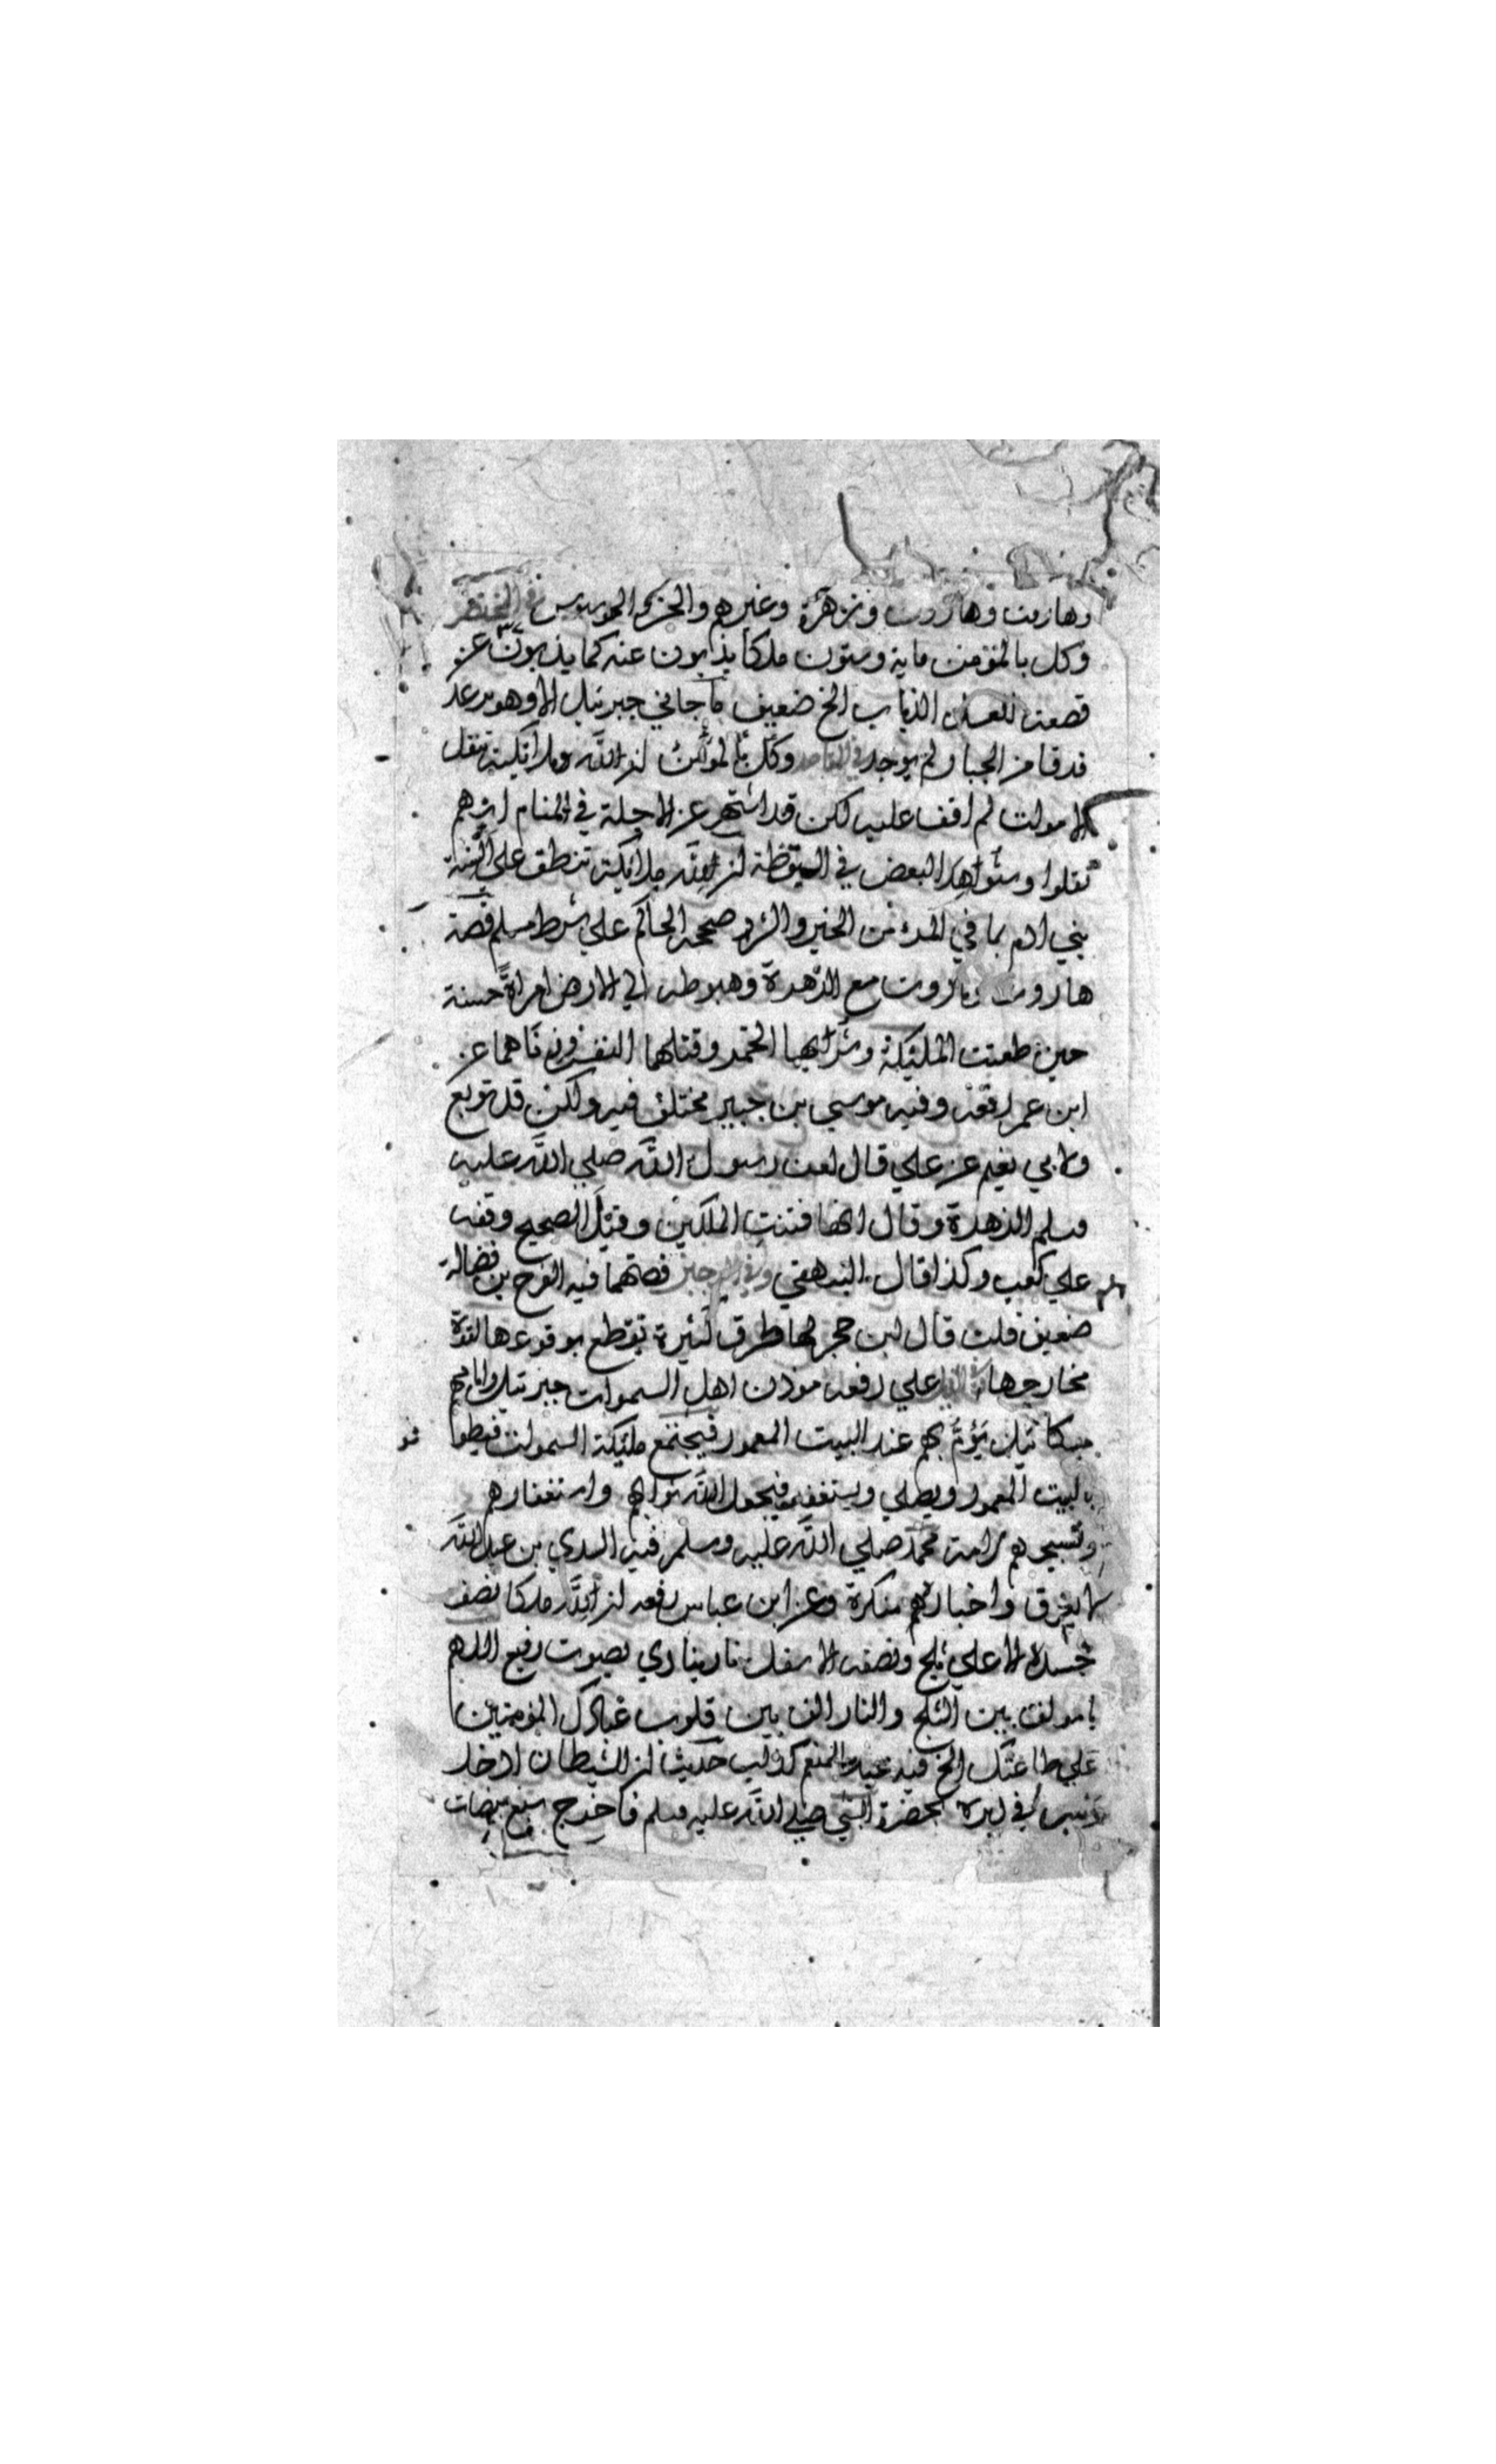 وهاروت وماروت وزهرة وغيرهم والجن والموسوس في المختصر
وكل بالمؤمن ماية وستون ملكا يذبون عنه كما يذبون عن
قصعة العسل الذباب الخ ضعيف ما جاني جبرئيل الا وهو يرعد
فرقا من الجبار لم يوجد في المقاصد وكل بالمؤمن ان الله ملائكة تنقل
الاموات لم اقف عليه لكن قد اشتهر عن الاجلة في المنام انهم
نقلوا وشواهد البعض في اليقظة ان لله ملائكة تنطق على السنة
بني ادم بما في المرء من الخير والشر صححه الحاكم على شرط مسلم قصة
هاروت وماروت مع الزهرة وهبوطه الي الارض امراة حسنة
حين طعنت الملئكة وشرابهما الخمر وقتلهما النفس وزناهما عن
ابن عمر رفعه وفيه موسي بن جبير مختلف فيه ولكن قد توبع
ولابي نعيم عن علي قال لعن رسول الله صلي الله عليه
وسلم الزهرة وقال انها فتنت الملكين وقيل الصحيح وقفه
علي كعب وكذا قال البيهقي وفي الوجيز قصتهما فيه الفرج بن فضالة
ضعيف قلت قال ابن حجر لها طرق كثيرة يقطع بوقوعها لقوة
مخارجها في الذيل علي رفعه موذن اهل السموات جبرئيل وامامهم
ميكائيل يؤم بهم عند البيت المعمور فيجتمع ملئكة السموات فيطوفو
بالبيت المعمور ويصلي ويستغفر فيجعل الله ثوابهم واستغفارهم
وتسبيحهم لامة محمد صلي الله عليه وسلم فيه السدي بن عبد الله
لا يعرق واخبارهم منكرة وعن ابن عباس رفعه ان لله ملكا نصف
جسده الاعلي ثلج ونصفه الاسفل نار ينادي بصوت رفيع اللهم
يا مولف بين الثلج والنار الف بين قلوب عبادك المؤمنين
علي طاعتك الخ فيه عبد المنعم كذاب حديث ان الشيطان ادخل
في دبره بحضرة النبي صلي الله عليه وسلم فاخرج سبع بيضات